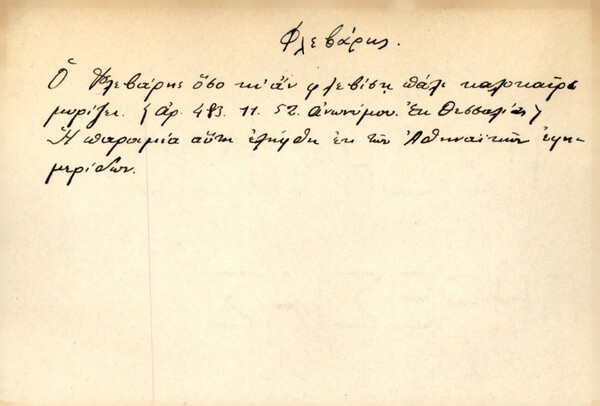 Φλεβάρης.
Ὁ Φλεβάρης ὅσο κι' ἂν φλεβίσῃ πάλι καλοκαῖρι
μυρίζει. (Ἀρ. 483. 11. 52. Ἀνωνύμου. Ἐκ Θεσσαλίας)
Ἡ παροιμία αὕτη ἐλήφθη ἐκ τῶν Ἀθηναϊκῶν ἐφη-
μερίδων.